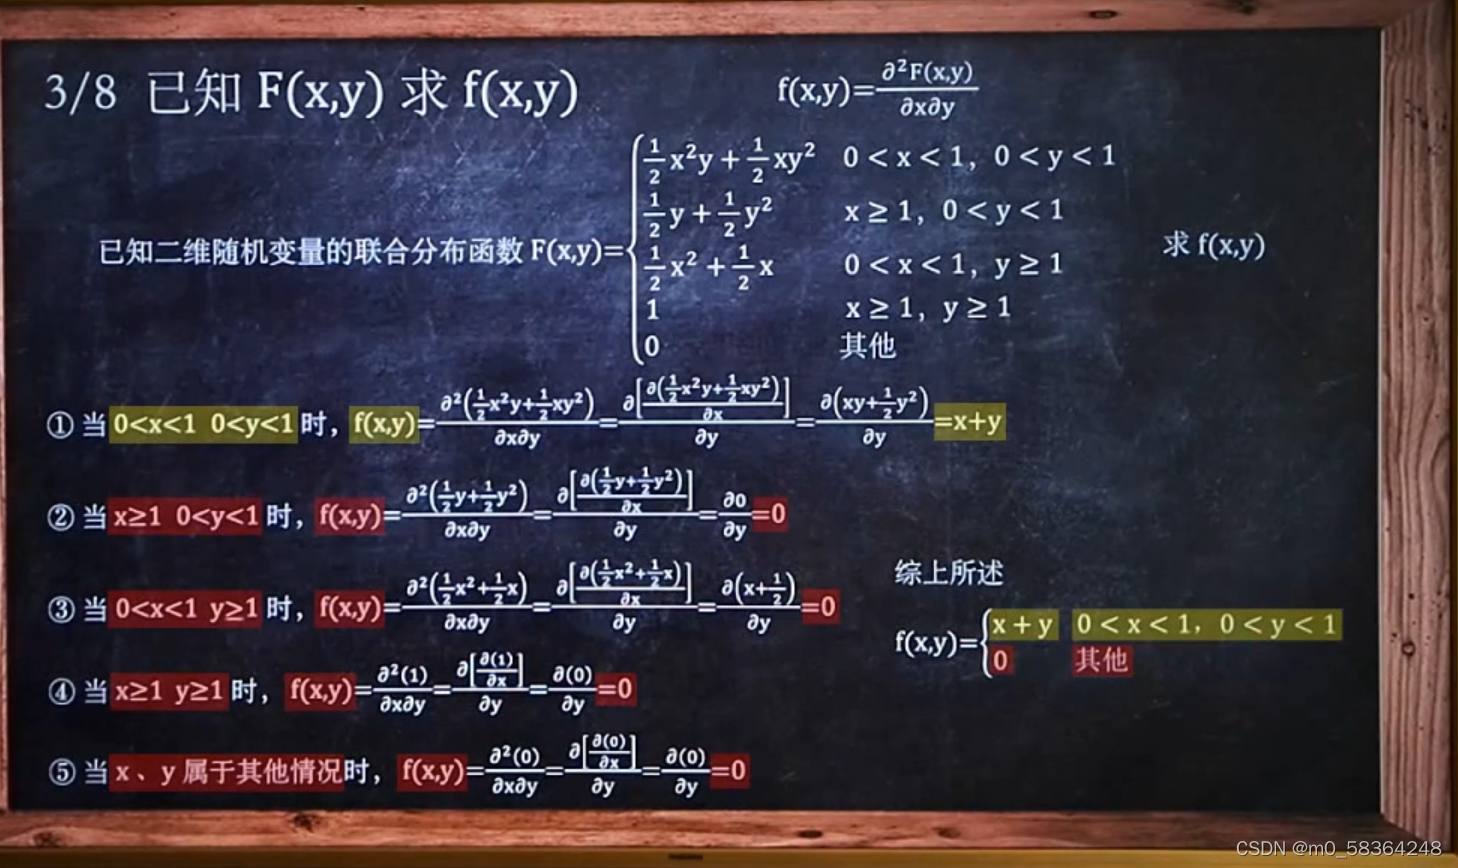 3/8 已知 F(x,y) 求 f(x,y)
f(x,y)=∂²F(x,y)/∂x∂y
已知二维随机变量的联合分布函数 F(x,y)={
1/2x²y+1/2xy² 0<x<1, 0<y<1
1/2y+1/2y² x≥1, 0<y<1
1/2x²+1/2x 0<x<1, y≥1
1 x≥1, y≥1
0 其他
求 f(x,y)
① 当 0<x<1 0<y<1 时, f(x,y)=∂²(1/2x²y+1/2xy²)/∂x∂y=∂[∂(1/2x²y+1/2xy²)/∂x]/∂y=∂(xy+1/2y²)/∂y=x+y
② 当 x≥1 0<y<1 时, f(x,y)=∂²(1/2y+1/2y²)/∂x∂y=∂[∂(1/2y+1/2y²)/∂x]/∂y=∂0/∂y=0
③ 当 0<x<1 y≥1 时, f(x,y)=∂²(1/2x²+1/2x)/∂x∂y=∂[∂(1/2x²+1/2x)/∂x]/∂y=∂(x+1/2)/∂y=0
④ 当 x≥1 y≥1 时, f(x,y)=∂²(1)/∂x∂y=∂[∂(1)/∂x]/∂y=∂(0)/∂y=0
⑤ 当 x、y 属于其他情况时, f(x,y)=∂²(0)/∂x∂y=∂[∂(0)/∂x]/∂y=∂(0)/∂y=0
综上所述
f(x,y)={
x+y 0<x<1, 0<y<1
0 其他
CSDN @m0_58364248